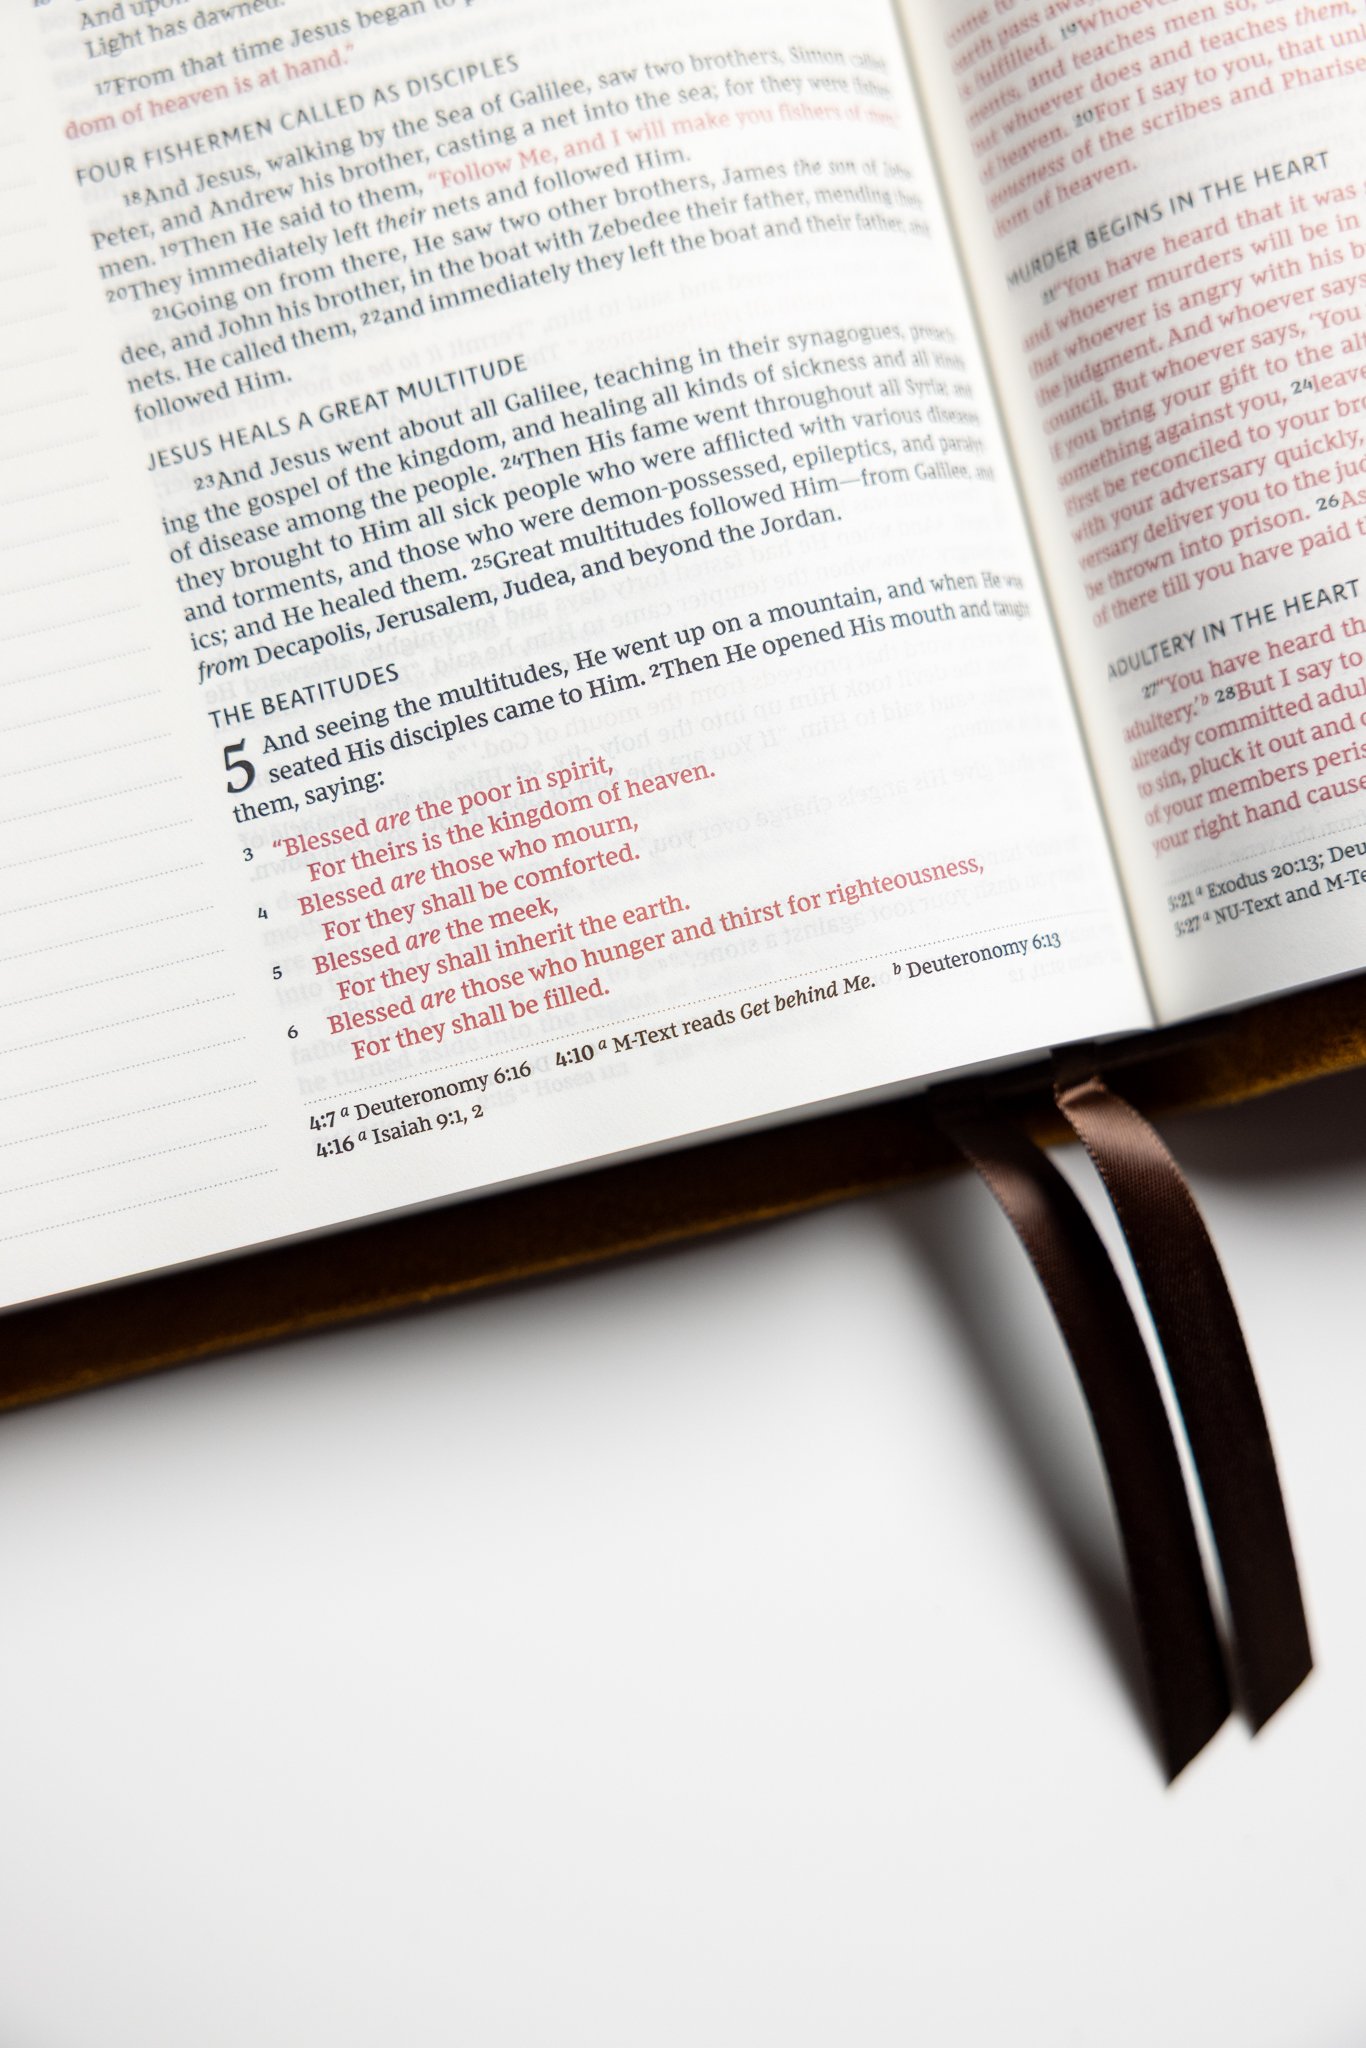 And upon
Light has dawned."
17From that time Jesus began to
dom of heaven is at hand."
FOUR FISHERMEN CALLED AS DISCIPLES
18And Jesus, walking by the Sea of Galilee, saw two brothers, Simon called
Peter, and Andrew his brother, casting a net into the sea; for they were fisher-
men. 19Then He said to them, "Follow Me, and I will make you fishers of men."
20They immediately left their nets and followed Him.
21Going on from there, He saw two other brothers, James the son of Zebe-
dee, and John his brother, in the boat with Zebedee their father, mending their
nets. He called them, 22and immediately they left the boat and their father, and
followed Him.
JESUS HEALS A GREAT MULTITUDE
23And Jesus went about all Galilee, teaching in their synagogues, preach-
ing the gospel of the kingdom, and healing all kinds of sickness and all kinds
of disease among the people. 24Then His fame went throughout all Syria; and
they brought to Him all sick people who were afflicted with various diseases
and torments, and those who were demon-possessed, epileptics, and paralyt-
ics; and He healed them. 25Great multitudes followed Him—from Galilee, and
from Decapolis, Jerusalem, Judea, and beyond the Jordan.
THE BEATITUDES
5 And seeing the multitudes, He went up on a mountain, and when He was
seated His disciples came to Him. 2Then He opened His mouth and taught
them, saying:
3 "Blessed are the poor in spirit,
For theirs is the kingdom of heaven.
4 Blessed are those who mourn,
For they shall be comforted.
5 Blessed are the meek,
For they shall inherit the earth.
6 Blessed are those who hunger and thirst for righteousness,
For they shall be filled.
4:7 a Deuteronomy 6:16 4:10 a M-Text reads Get behind Me. b Deuteronomy 6:13
4:16 a Isaiah 9:1, 2
earth pass away
is fulfilled. 19Whoever
ments, and teaches men so,
but whoever does and teaches them,
of heaven. 20For I say to you, that unl
eousness of the scribes and Pharise
dom of heaven.
MURDER BEGINS IN THE HEART
21"You have heard that it was
and whoever murders will be in
that whoever is angry with his b
the judgment. And whoever says
council. But whoever says, 'You
if you bring your gift to the alt
something against you, 24leave
first be reconciled to your bro
with your adversary quickly,
versary deliver you to the jud
be thrown into prison. 26As
of there till you have paid t
ADULTERY IN THE HEART
27"You have heard th
adultery.'b 28But I say to
already committed adul
to sin, pluck it out and c
of your members peris
your right hand cause
5:21 a Exodus 20:13; Deu
5:27 a NU-Text and M-Te